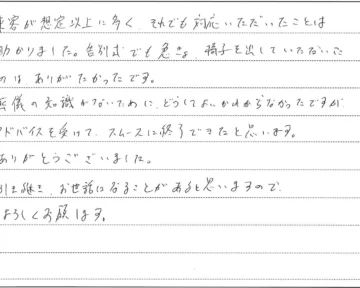 来客が想定以上に多く、それでも対応いただいたことは
助かりました。告別式でも急きょ、椅子を出していただいた
のは ありがたかったです。
葬儀の知識がないために、どうしてよいかわからなかったですが、
アドバイスを受けて、スムースに終了できたと思います。
ありがとうございました。
引き継き、お世話になることがあると思いますので
よろしくお願します。